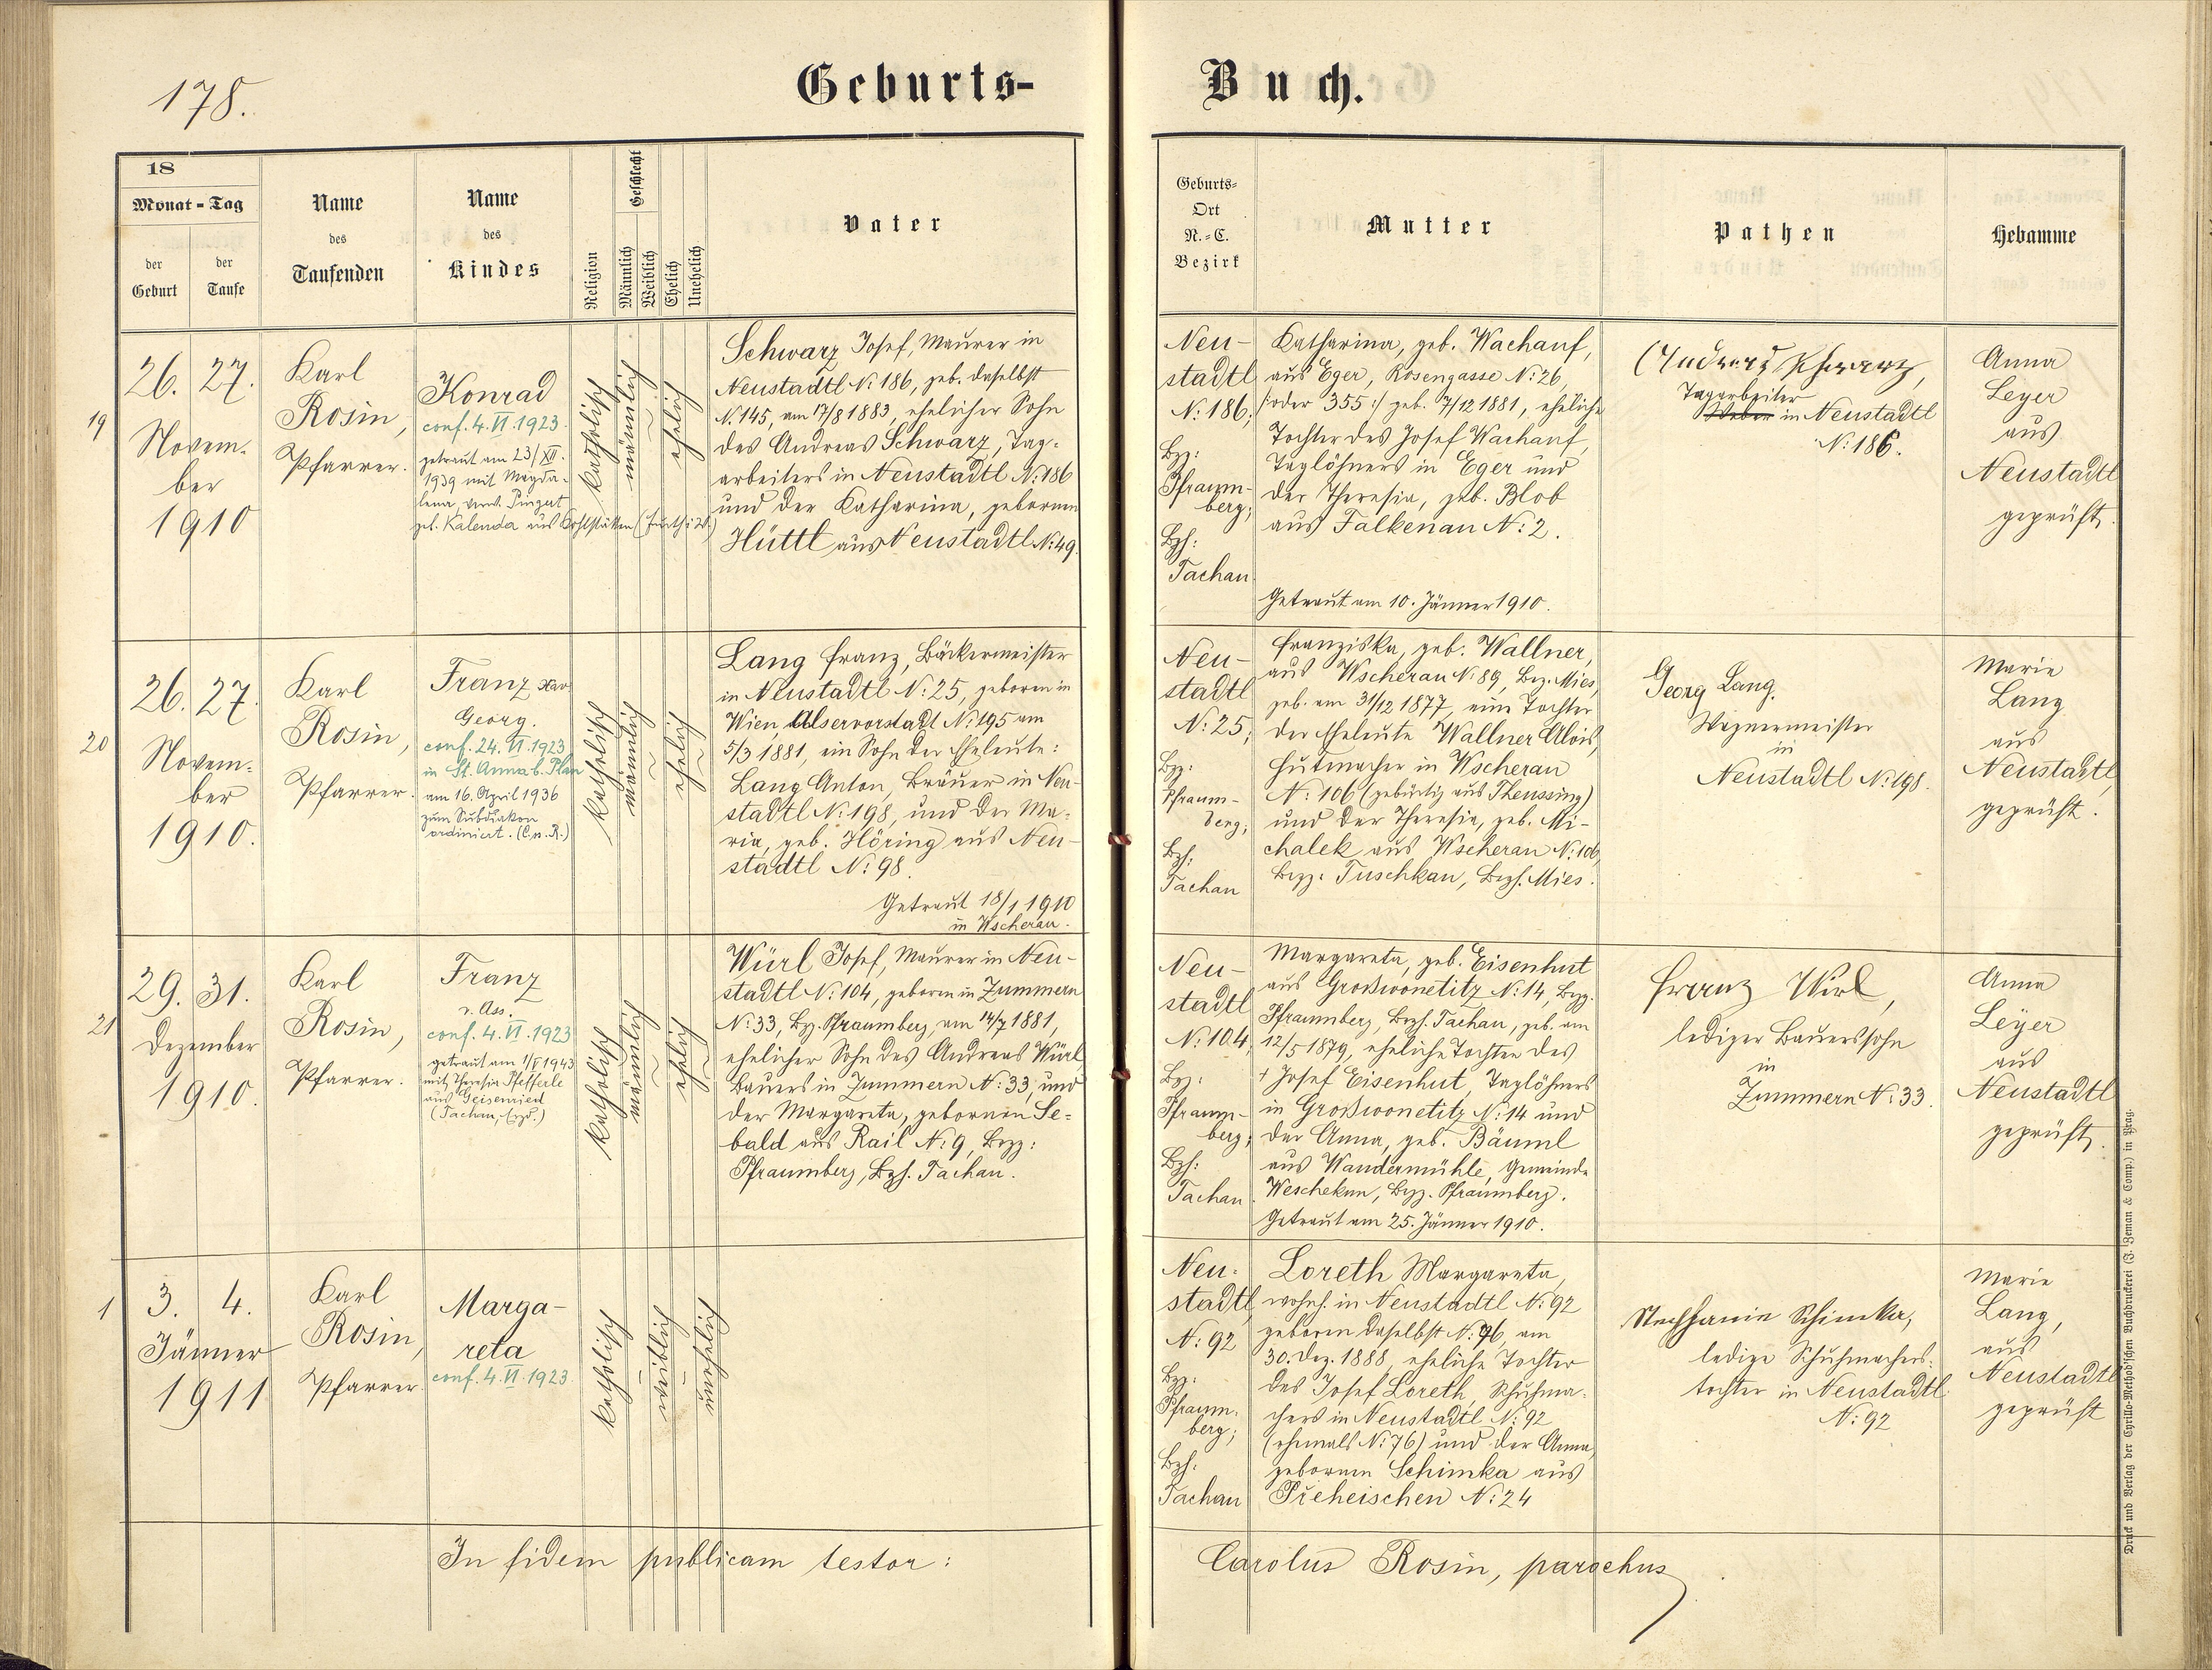 178.
Geburts-
Buch.
18
Monat - Tag
der
Geburt
der
Taufe
Name
des
Taufenden
Name
des
Kindes
Religion
Geschlecht
Männlich
Weiblich
Ehelich
Unehelich
Vater
Geburts-
Ort
N.-C.
Bezirk
Mutter
Pathen
Hebamme
19
26. 27.
Novem-
ber
1910
Karl
Rosin,
Pfarrer.
Konrad
conf. 4. VI. 1923.
getraut am 23/XII.
1939 mit Magda-
lena, verw.
geb. Kalenda aus Kohlstätten (Furth i. W.)
katholisch
männlich
ehelich
Schwarz Josef, Maurer in
Neustadtl N: 186, geb. daselbst
N. 145, am 17/8 1883, ehelicher Sohn
des Andreas Schwarz, Tag-
arbeiters in Neustadtl N: 186
und der Katharina, geborenen
Hüttl aus Neustadtl N: 49.
Neu-
stadtl
N: 186;
Bz:
Pfraum-
berg;
Bzh:
Tachau
Katharina, geb. Wachauf,
aus Eger, Rosengasse N: 26,
/:oder 355:/ geb. 7/12 1881, eheliche
Tochter des Josef Wachauf,
Taglöhners in Eger und
der Theresia, geb. Blob
aus Falkenau N: 2.
Getraut am 10. Jänner 1910.
Andreas Schwarz,
Tagarbeiter
Weber in Neustadtl
N: 186.
Anna
Leyer
aus
Neustadtl
geprüft.
20
26. 27.
Novem-
ber
1910.
Karl
Rosin,
Pfarrer.
Franz Xav.
Georg.
conf. 24. VI. 1923
in St. Anna b. Plan
am 16. April 1936
zum Subdiakon
ordiniert. (C. n. R.)
katholisch
männlich
ehelich
Lang Franz, Bäckermeister
in Neustadtl N: 25, geboren in
Wien, Alservorstadt N: 195 am
5/3 1881, ein Sohn der Eheleute:
Lang Anton, Bräuer in Neu-
stadtl N: 198, und der Ma-
ria, geb. Höring aus Neu-
stadtl N: 98.
Getraut 18/1 1910
in Wscherau.
Neu-
stadtl
N: 25;
Bz:
Pfraum-
berg;
Bzh:
Tachau
Franziska, geb. Wallner,
aus Wscherau N: 89, Bez. Mies,
geb. am 31/12 1877, eine Tochter
der Eheleute Wallner Alois,
Hutmacher in Wscherau
N: 106 (gebürtig aus Theussing)
und der Theresia, geb. Mi-
chalek aus Wscherau N: 106,
Bzz: Tuschkau, Bezh. Mies.
Georg Lang.
Wagnermeister
in
Neustadtl N: 198.
Marie
Lang
aus
Neustadtl,
geprüft.
21
29. 31.
Dezember
1910.
Karl
Rosin,
Pfarrer.
Franz
v. Ass.
conf. 4. VI. 1923
getraut am 1/V 1943
mit Theresia Pfefferle
aus Geisenried
(Tachau, Bzd.)
katholisch
männlich
ehelich
Würl Josef, Maurer in Neu-
stadtl N: 104, geboren in Zummern
N: 33, Bz. Pfraumberg, am 14/7 1881,
ehelicher Sohn des Andreas Würl,
Bauers in Zummern N: 33, und
der Margareta, gebornen Se-
bald aus Rail N: 9, Bzz:
Pfraumberg, Bzh. Tachau.
Neu-
stadtl
N: 104,
Bz:
Pfraum-
berg;
Bzh:
Tachau
Margareta, geb. Eisenhut
aus Großwonetitz N: 14, Bzz.
Pfraumberg, Bezh. Tachau, geb. am
12/5 1879, eheliche Tochter des
† Josef Eisenhut, Taglöhners
in Großwonetitz N: 14 und
der Anna, geb. Bäuml
aus Wandermühle, Gemeinde
Weschekun, Bzz. Pfraumberg.
Getraut am 25. Jänner 1910.
Franz Wirl,
lediger Bauerssohn
in
Zummern N: 33.
Anna
Leyer
aus
Neustadtl
geprüft.
1
3. 4.
Jänner
1911
Karl
Rosin,
Pfarrer.
Marga-
reta
conf. 4. VI. 1923.
katholisch
weiblich
unehelich
Neu-
stadtl,
N: 92
Bz:
Pfraum-
berg;
Bzh:
Tachau
Loreth Margareta,
wohnh. in Neustadtl N: 92
geboren daselbst N: 76, am
30. Dez. 1888, eheliche Tochter
des Josef Loreth, Schuhma-
chers in Neustadtl N: 92
(ehmals N: 76) und der Anna,
gebornen Schimka aus
Přeheischen N: 24
Stephanie Schimka,
ledige Schuhmachers-
tochter in Neustadtl
N: 92
Marie
Lang,
aus
Neustadtl
geprüft
In fidem publicam testor:
Carolus Rosin, parochus
Druck und Verlag der Cyrillo-Method'schen Buchdruckerei (J. Zeman & Comp.) in Prag.